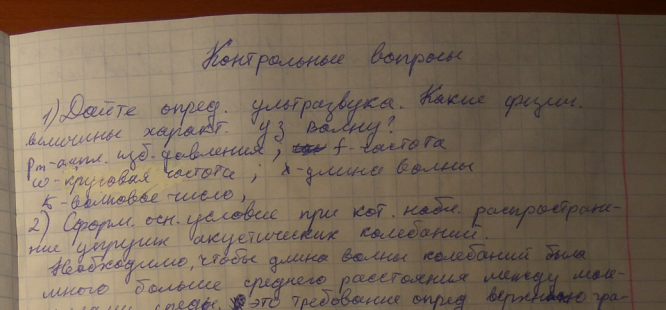 Контрольные вопросы
1) Дайте опред. ультразвука. Какие физич.
величины характ. УЗ волну?
Pm-ампл. изб. давления, f-частота
ω-круговая частота; λ-длина волны
k-волновое число,
2) Сформ. осн. условие при кот. набл. распростране-
ние упругих акустических колебаний.
Необходимо, чтобы длина волны колебаний была
много больше среднего расстояния между моле-
среды. это требование опред верхнюю гра-